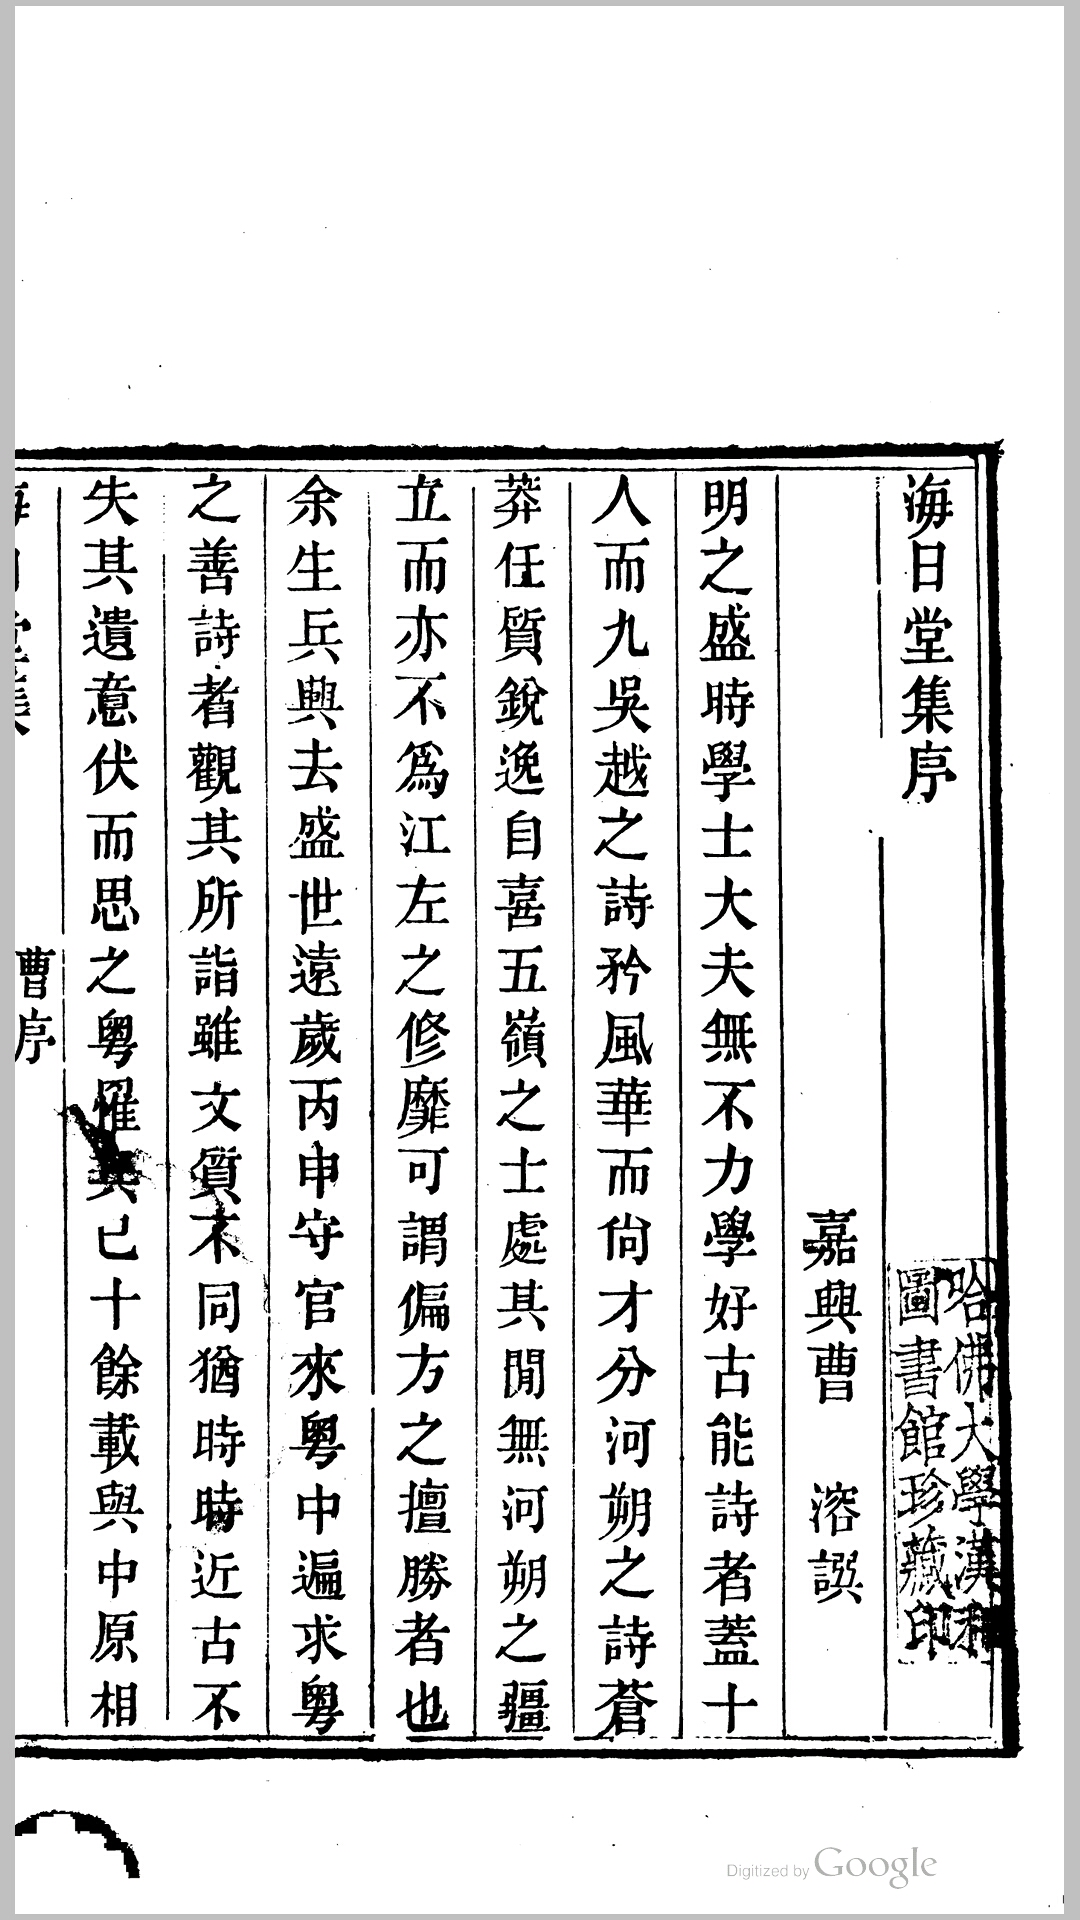 海日堂集序
哈佛大學漢和
圖書館珍藏印
嘉興曹溶譔
明之盛時學士大夫無不力學好古能詩者蓋十
人而九吳越之詩矜風華而尙才分河朔之詩蒼
莽任質銳逸自喜五嶺之士處其閒無河朔之彊
立而亦不爲江左之修靡可謂偏方之擅勝者也
余生兵興去盛世遠歲丙申守官來粵中遍求粵
之善詩者觀其所詣雖文質不同猶時時近古不
失其遺意伏而思之粵罹兵已十餘載與中原相
海日堂集
曹序
Digitized by Google